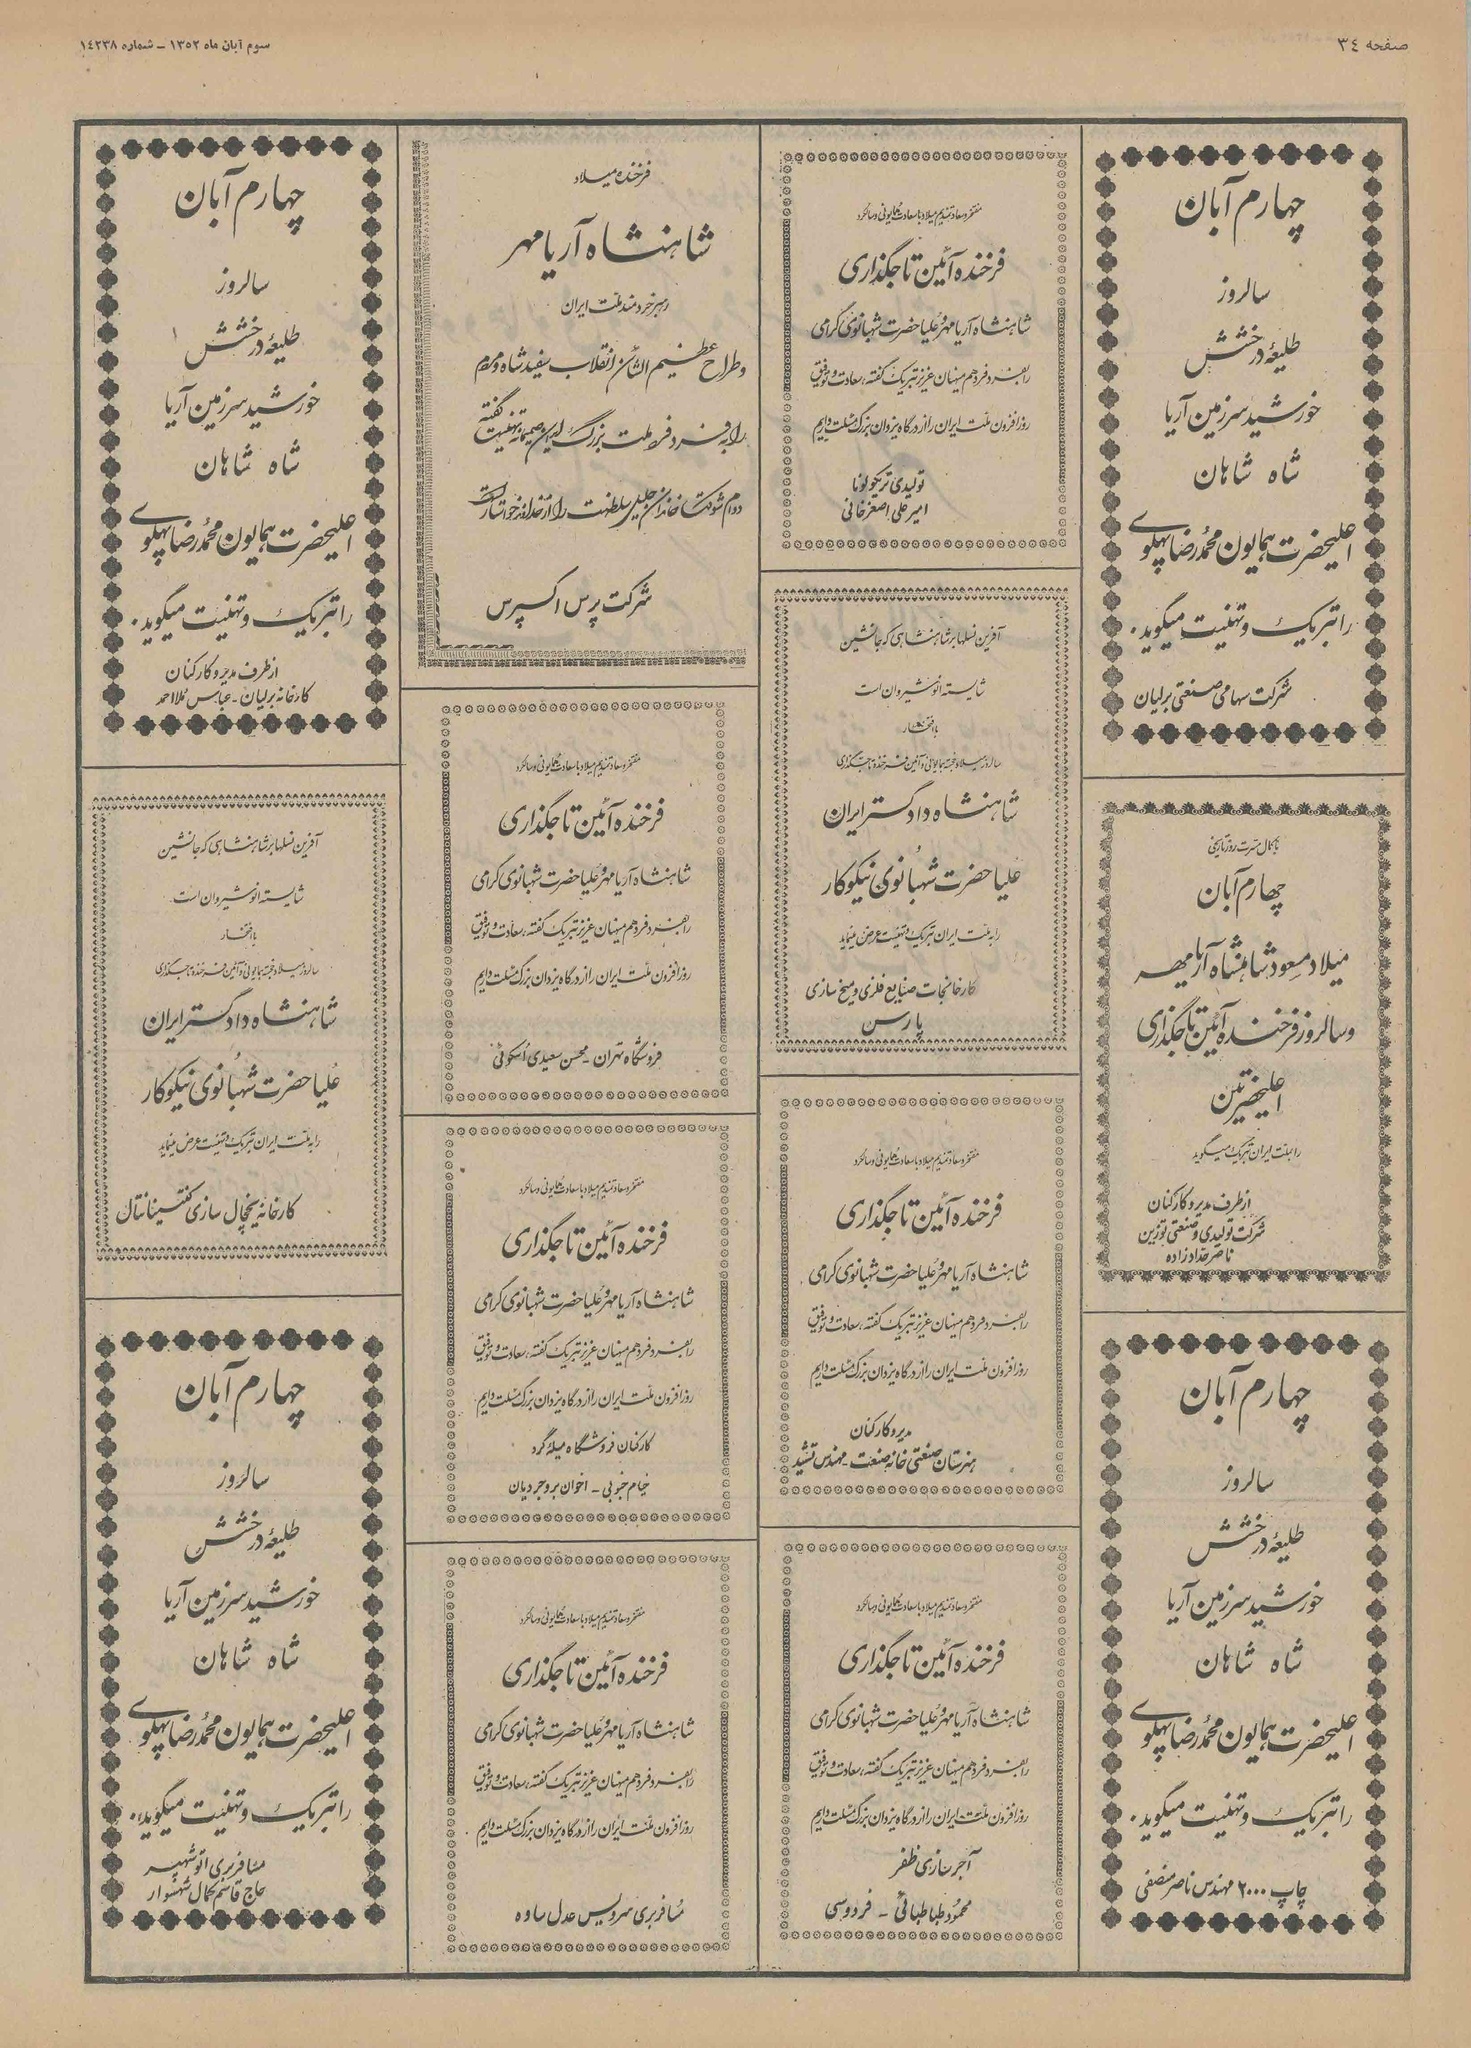 صفحه ۳٤
سوم آبان ماه ۱۳۵۲ - شماره ۱٤۲۳۸
چهارم آبان
سالروز
طلیعهٔ درخشش
خورشید سرزمین آریا
شاه شاهان
اعلیحضرت همایون محمدرضا پهلوی
را تبریک و تهنیت میگوید.
شرکت سهامی صنعتی برلیان
با کمال مسرت روز تاریخی
چهارم آبان
میلاد مسعود شاهنشاه آریامهر
و سالروز فرخنده آئین تاجگذاری
اعلیحضرتین
را بملت ایران تبریک میگوید
از طرف مدیر و کارکنان
شرکت تولیدی و صنعتی توزین
ناصر حدادزاده
چهارم آبان
سالروز
طلیعهٔ درخشش
خورشید سرزمین آریا
شاه شاهان
اعلیحضرت همایون محمدرضا پهلوی
را تبریک و تهنیت میگوید.
چاپ ۲۰۰۰ مهندس ناصر منصفی
مفتخر و سعادتمندیم میلاد با سعادت همایونی و سالگرد
فرخنده آئین تاجگذاری
شاهنشاه آریامهر و علیاحضرت شهبانوی گرامی
را بفرد فرد هم میهنان عزیز تبریک گفته، سعادت و توفیق
روزافزون ملت ایران را از درگاه یزدان بزرگ مسئلت داریم
تولیدی تریکو لونا
امیر علی اصغرخانی
آفرین نسلها بر شاهنشاهی که جانشین
شایسته انوشیروان است
با افتخار
سالروز میلاد خجسته همایونی و آئین فرخنده تاجگذاری
شاهنشاه دادگستر ایران
علیاحضرت شهبانوی نیکوکار
را به ملت ایران تبریک و تهنیت عرض مینماید
کارخانجات صنایع فلزی و میخ سازی
پارس
مفتخر و سعادتمندیم میلاد با سعادت همایونی و سالگرد
فرخنده آئین تاجگذاری
شاهنشاه آریامهر و علیاحضرت شهبانوی گرامی
را بفرد فرد هم میهنان عزیز تبریک گفته، سعادت و توفیق
روزافزون ملت ایران را از درگاه یزدان بزرگ مسئلت داریم
مدیر و کارکنان
هنرستان صنعتی خانه صنعت - مهندس تشید
مفتخر و سعادتمندیم میلاد با سعادت همایونی و سالگرد
فرخنده آئین تاجگذاری
شاهنشاه آریامهر و علیاحضرت شهبانوی گرامی
را بفرد فرد هم میهنان عزیز تبریک گفته، سعادت و توفیق
روزافزون ملت ایران را از درگاه یزدان بزرگ مسئلت داریم
آجر سازی ظفر
محمود طباطبائی - فردوسی
فرخنده میلاد
شاهنشاه آریامهر
رهبر خردمند ملت ایران
و طراح عظیم الشأن انقلاب سفید شاه و مردم
را به فرد فرد ملت بزرگ ایران صمیمانه تهنیت گفته
دوام شوکت خاندان جلیل سلطنت را از خداوند خواستار است
شرکت پرس اکسپرس
مفتخر و سعادتمندیم میلاد با سعادت همایونی و سالگرد
فرخنده آئین تاجگذاری
شاهنشاه آریامهر و علیاحضرت شهبانوی گرامی
را بفرد فرد هم میهنان عزیز تبریک گفته، سعادت و توفیق
روزافزون ملت ایران را از درگاه یزدان بزرگ مسئلت داریم
فروشگاه تهران - محسن سعیدی اسکوئی
مفتخر و سعادتمندیم میلاد با سعادت همایونی و سالگرد
فرخنده آئین تاجگذاری
شاهنشاه آریامهر و علیاحضرت شهبانوی گرامی
را بفرد فرد هم میهنان عزیز تبریک گفته، سعادت و توفیق
روزافزون ملت ایران را از درگاه یزدان بزرگ مسئلت داریم
کارکنان فروشگاه میله گرد
خیام جنوبی - اخوان بروجردیان
مفتخر و سعادتمندیم میلاد با سعادت همایونی و سالگرد
فرخنده آئین تاجگذاری
شاهنشاه آریامهر و علیاحضرت شهبانوی گرامی
را بفرد فرد هم میهنان عزیز تبریک گفته، سعادت و توفیق
روزافزون ملت ایران را از درگاه یزدان بزرگ مسئلت داریم
مسافربری سرویس عدل ساوه
چهارم آبان
سالروز
طلیعهٔ درخشش
خورشید سرزمین آریا
شاه شاهان
اعلیحضرت همایون محمدرضا پهلوی
را تبریک و تهنیت میگوید.
از طرف مدیر و کارکنان
کارخانه برلیان - عباس ملااحمد
آفرین نسلها بر شاهنشاهی که جانشین
شایسته انوشیروان است
با افتخار
سالروز میلاد خجسته همایونی و آئین فرخنده تاجگذاری
شاهنشاه دادگستر ایران
علیاحضرت شهبانوی نیکوکار
را به ملت ایران تبریک و تهنیت عرض مینماید
کارخانه یخچال سازی کنتینانتال
چهارم آبان
سالروز
طلیعهٔ درخشش
خورشید سرزمین آریا
شاه شاهان
اعلیحضرت همایون محمدرضا پهلوی
را تبریک و تهنیت میگوید.
مسافربری اتوشهپر
حاج قاسم کمال شهسوار